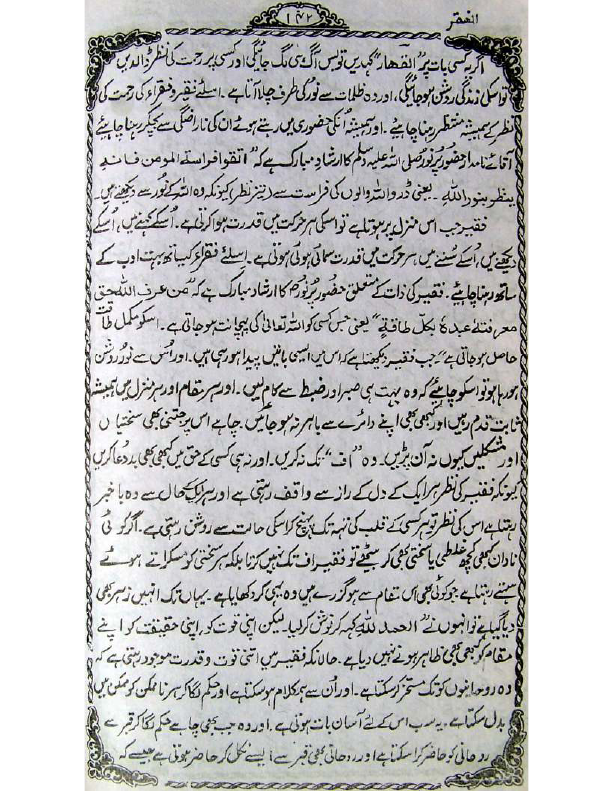 الفقر
۱۴۲
اگر یہ کسی بات پر "القهار" کہدیں تو بس آگ ہی لگ جائیگی اور کسی پر رحمت کی نظر ڈالدیں
تو اسکی زندگی روشن ہو جائیگی، اور وہ ظلمات سے نور کی طرف چلا آتا ہے۔ اسلئے فقیر و فقراء کی رحمت کی
نظر کے ہمیشہ منتظر رہنا چاہیئے۔ اور ہمیشہ اُنکی حضوری میں رہتے ہوئے اُن کی ناراضگی سے بچکر رہنا چاہیئے
آقائے نامدار حضور پُر نور صلی اللہ علیہ وسلم کا ارشادِ مبارک ہے کہ "اتقوا فراسة المومن فانه
ینظر بنور اللہ۔ یعنی ڈرو اللہ والوں کی فراست سے (تیز نظر) کیونکہ وہ اللہ کے نُور سے دیکھتے ہیں۔
فقیر جب اس منزل پر ہوتا ہے تو اسکی ہر حرکت میں قدرت ہوا کرتی ہے۔ اُسکے کہنے میں، اُسکے
دیکھنے میں، اُسکے سُننے میں ہر حرکت میں قدرت سمائی ہوئی ہوتی ہے۔ اسلئے فقراء کیساتھ بہت ادب کے
ساتھ رہنا چاہیئے۔ فقیر کی ذات کے متعلق حضور پُر نور کا ارشاد مبارک ہے کہ "من عرف اللہ حق
معرفته عبدہ بکل طاقتہ" یعنی جس کسی کو اللہ تعالیٰ کی پہچانت ہو جاتی ہے۔ اسکو مکمل طاقت
حاصل ہو جاتی ہے"۔ جب فقیر دیکھتا ہے کہ اس میں ایسی باتیں پیدا ہو رہی ہیں۔ اور اُس سے نور روشن
ہو رہا ہو تو اسکو چاہیئے کہ وہ بہت ہی صبر اور ضبط سے کام لیں۔ اور ہر مقام اور ہر منزل میں ہمیشہ
ثابت قدم رہیں اور کبھی بھی اپنے دائرے سے باہر نہ ہو جائیں۔ چاہے اس پر جتنی بھی سختیاں
اور مشکلیں کیوں نہ آن پڑیں۔ وہ "اف" تک نہ کریں۔ اور نہ ہی کسی کے حق میں کبھی بھی بددُعا کریں
کیونکہ فقیر کی نظر ہر ایک کے دل کے راز سے واقف رہتی ہے اور ہر ایک کے حال سے وہ با خبر
رہتا ہے اس کی نظر تو ہر کسی کے قلب کی تہہ تک پہنچ کر اسکی حالت سے روشن رہتی ہے۔ اگر کوئی
نادان کبھی کچھ غلطی یا سختی بھی کر بیٹھے تو فقیر اف تک نہیں کرتا بلکہ ہر سختی کو مسکراتے ہوئے
سہتے رہتا ہے جو کوئی بھی اس مقام سے ہو گزرے ہیں وہ یہی کر دکھایا ہے۔ یہاں تک انہیں زہر بھی
دیا گیا ہے تو انہوں نے "الحمد للہ" کہہ کر نوش کر لیا لیکن اپنی قوت کو، اپنی حقیقت کو اپنے
مقام کو کبھی بھی ظاہر ہونے نہیں دیا ہے۔ حالانکہ فقیر میں اتنی قوت و قدرت موجود رہتی ہے کہ
وہ روحانیوں کو تک مسخر کر سکتا ہے۔ اور اُن سے ہم کلام ہو سکتا ہے اور حکم لگا کر ہر نا ممکن کو ممکن میں
بدل سکتا ہے۔ یہ سب اس کے لئے آسان بات ہوتی ہے۔ اور وہ جب بھی چاہے حکم لگا کر قبر سے
روحانی کو حاضر کرا سکتا ہے اور روحانی بھی قبر سے ایسے نکل کر حاضر ہوتی ہے جیسے کہ